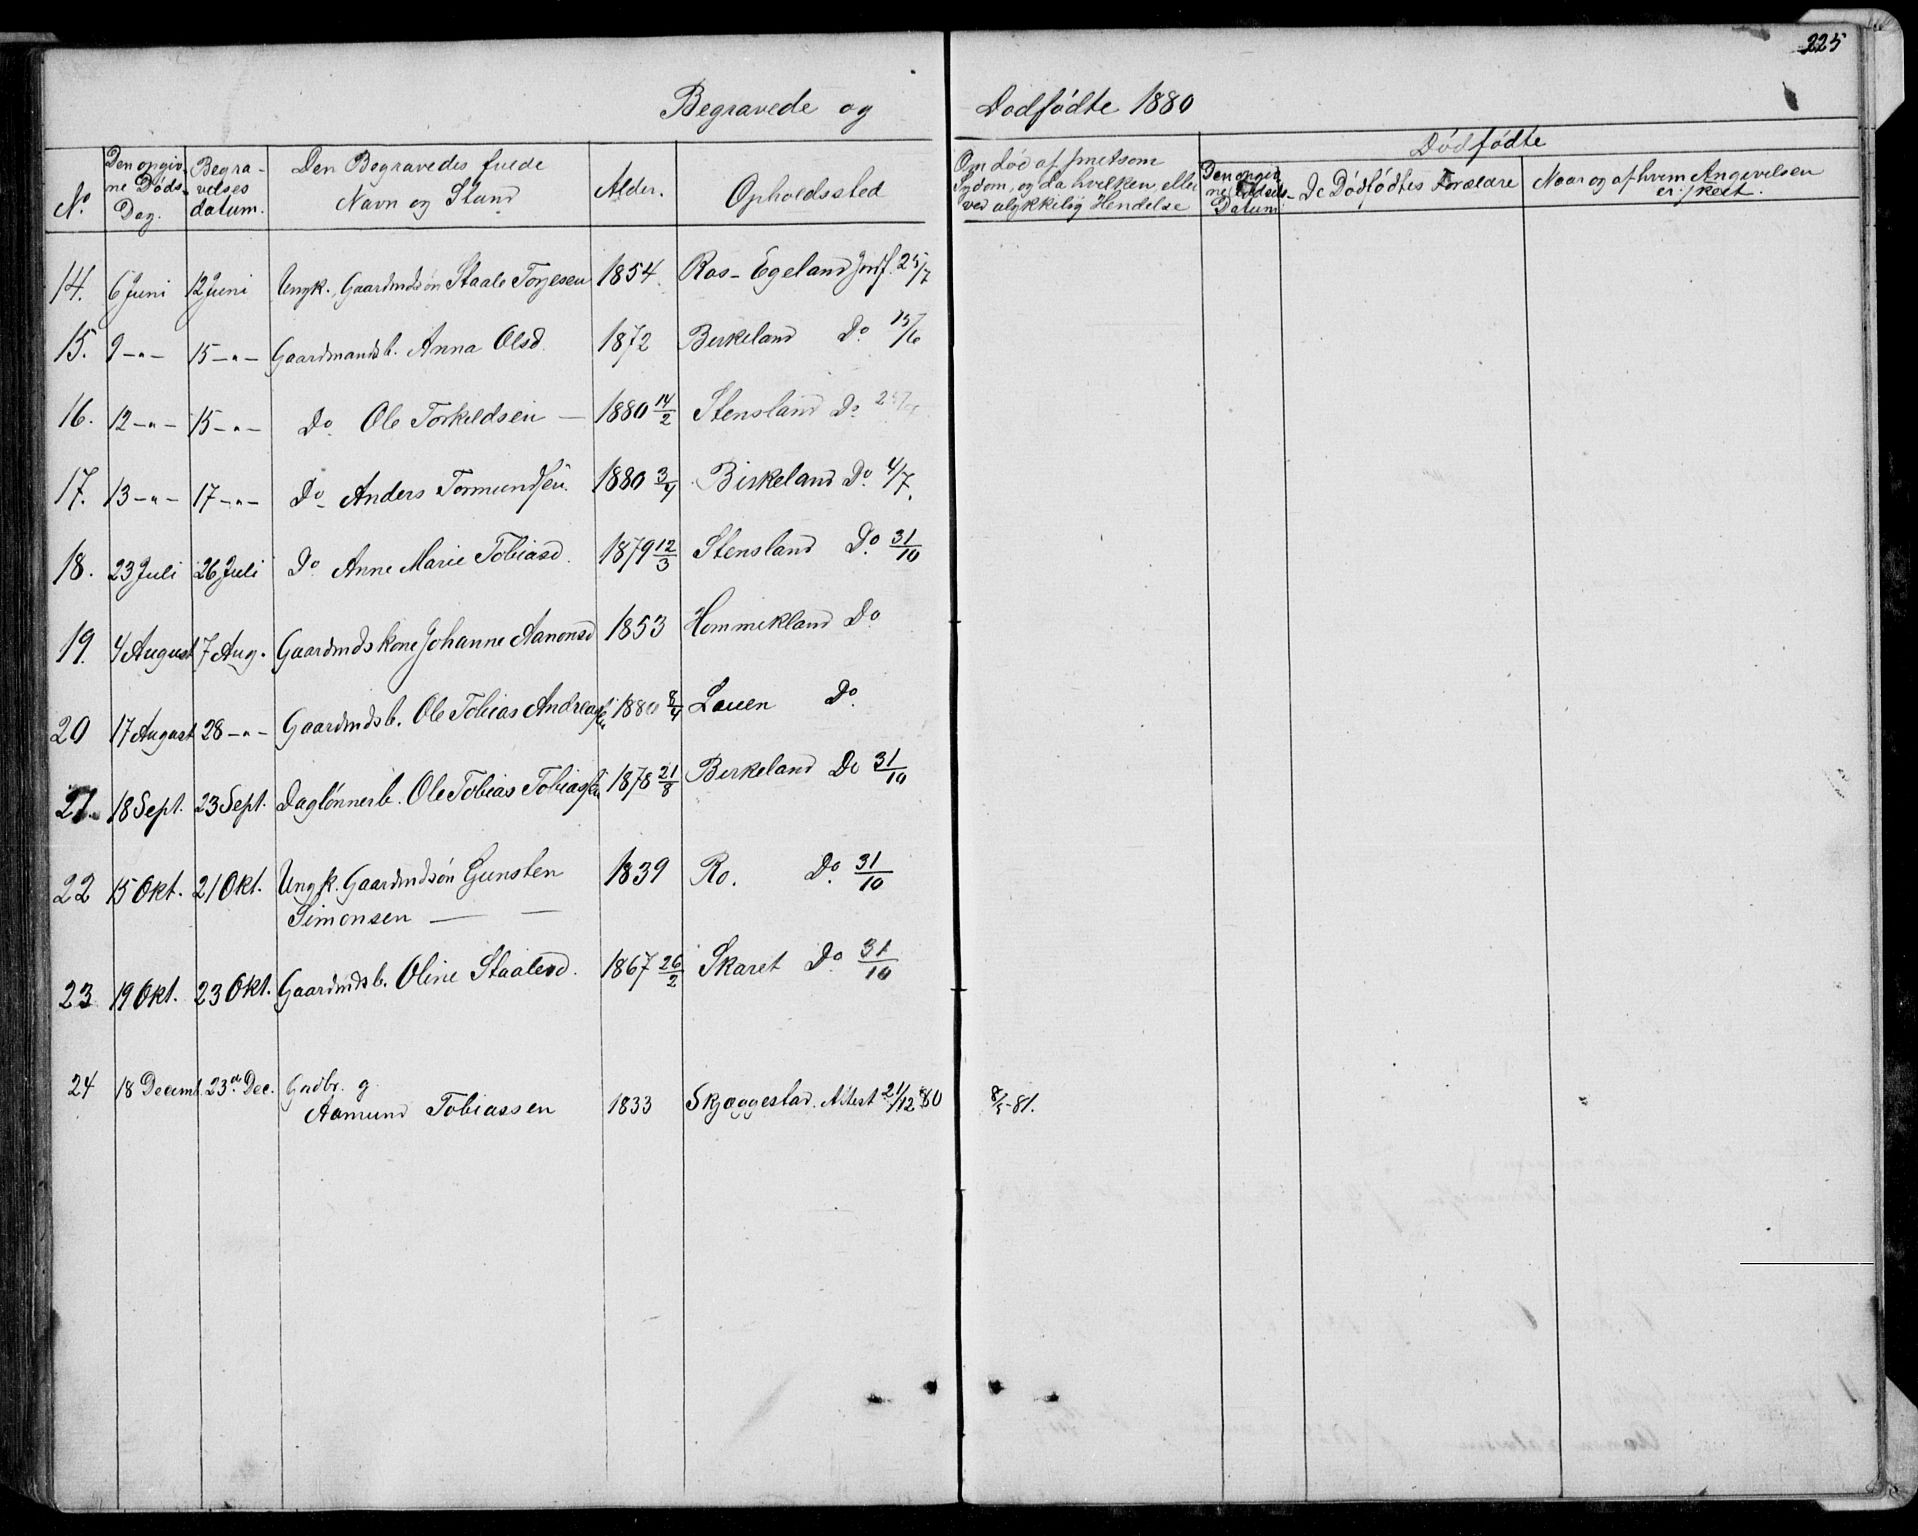 225
Begravede og Dodfødte 1880
No
Den opgivne Døds-Dag.
Begravelses datum.
Den Begravedes fulde Navn og Stand
Alder.
Opholdssted
Om død af smitsom Sygdom, og da hvilken, eller ved ulykkelig Hendelse
Dødfødte
Den opgivne Datum
De Dødfødtes Forældre
Naar og af hvem Angivelsen er skeet.
14. 6 Juni 12 Juni Ungk. Gaardmdsøn Staale Torjesen 1854. Ros-Egeland Jordf. 25/7
15. 9 -"- 15 -"- Gaardmandsb. Anna Olsd. 1872 Birkeland Do 15/6
16. 12 -"- 15 -"- Do Ole Torkeldsen — 1880 14/2 Stensland Do
17. 13 -"- 17 -"- Do Anders Tormundsen. 1880 3/4 Birkeland Do 4/7.
18. 23 Juli 26 Juli Do Anne Marie Tobiasd. 1879 12/3 Stensland Do 31/10
19. 4 August 7 Aug. Gaardmdskone Johanne Aanonsd 1853 Hommekland Do
20 17 August 28 -"- Gaardmdsb. Ole Tobias Andreassen 1880 8/4 Lauen Do
21. 18 Sept. 23 Sept. Daglønnerb. Ole Tobias Tobiassen 1878 21/8 Birkeland Do 31/10
22 15 Okt. 21 Okt. Ungk. Gaardmdsøn Gunsten 1839 Ro. Do 31/10
Simonsen — —
23 19 Okt. 23 Okt. Gaardmdsb. Oline Staalesd. 1867 26/2 Skaret Do 31/10
24 18 Decemb. 23de Dec. Gadbr. g
Aamund Tobiassen 1833 Skjæggestad. Attest 21/12 80 8/5-81.